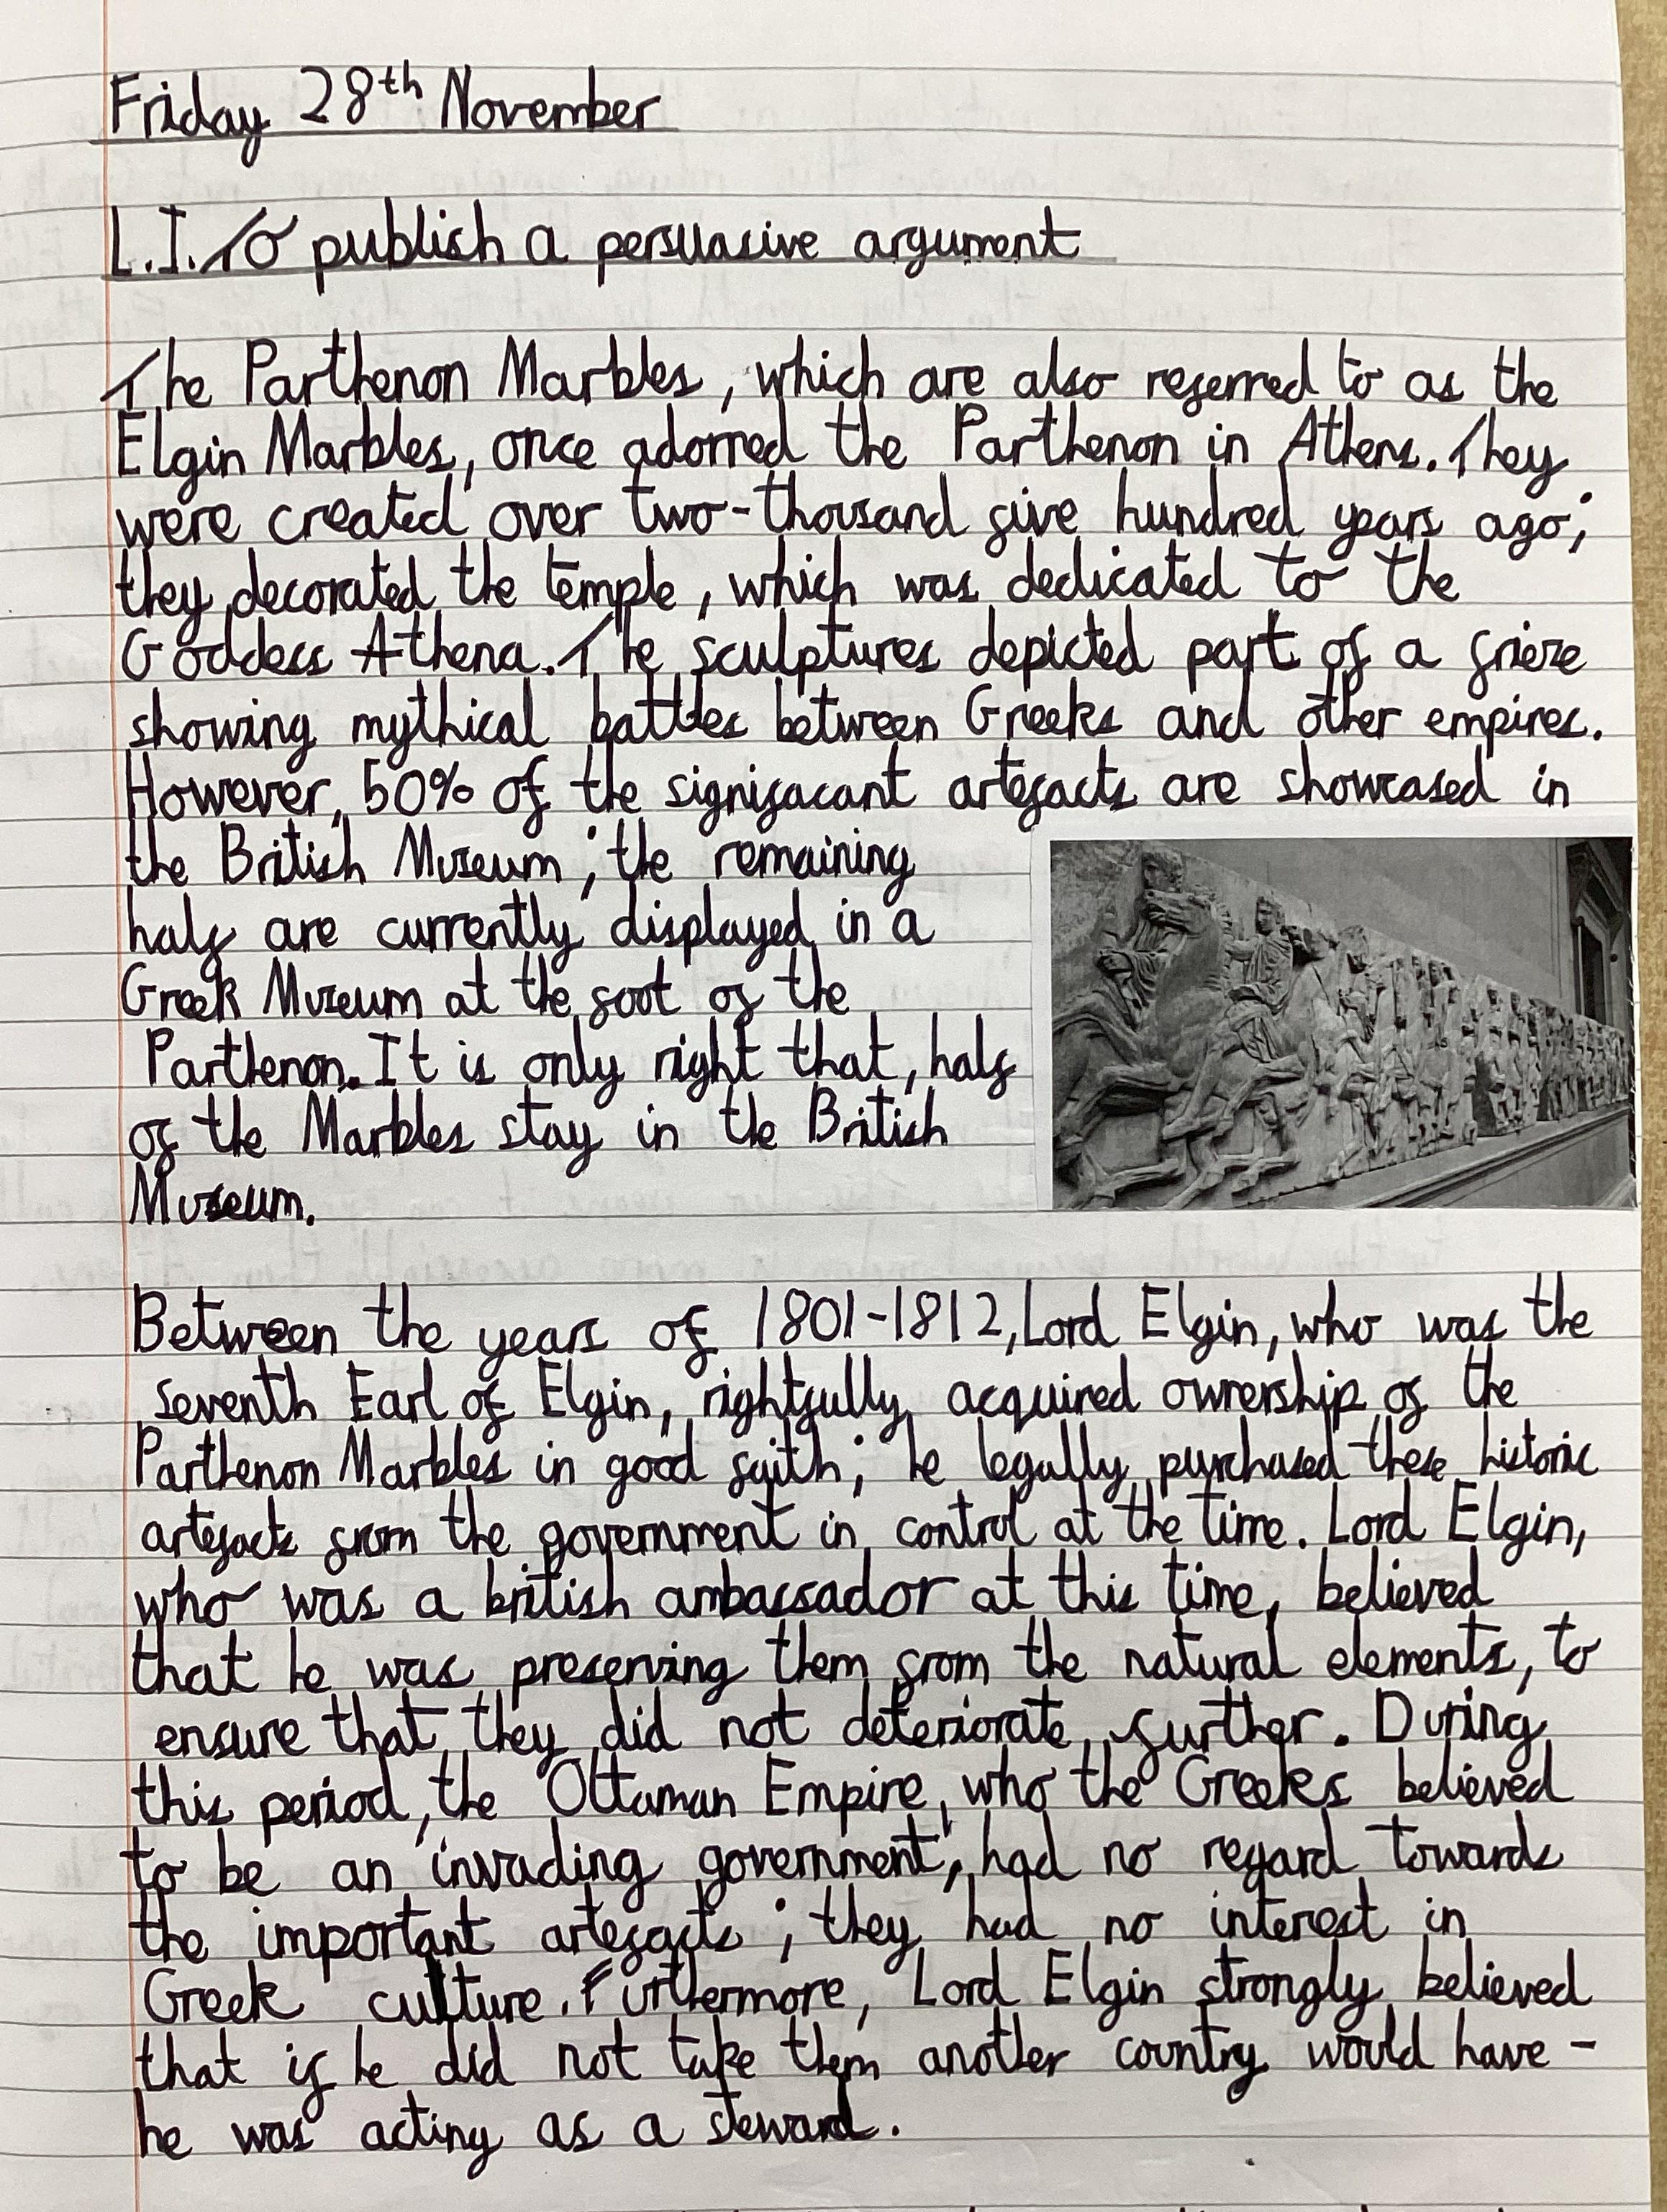 Friday 28th November
L.I. To publish a persuasive argument
The Parthenon Marbles, which are also referred to as the
Elgin Marbles, once adorned the Parthenon in Athens. They
were created over two-thousand five hundred years ago;
they decorated the temple, which was dedicated to the
Goddess Athena. The sculptures depicted part of a frieze
showing mythical battles between Greeks and other empires.
However, 50% of the signifacant artefacts are showcased in
the British Museum; the remaining
half are currently displayed in a
Greek Museum at the foot of the
Parthenon. It is only right that, half
of the Marbles stay in the British
Museum.
Between the years of 1801-1812, Lord Elgin, who was the
seventh Earl of Elgin, rightfully acquired ownership of the
Parthenon Marbles in good faith; he legally purchased these historic
artefacts from the government in control at the time. Lord Elgin,
who was a british ambassador at this time, believed
that he was preserving them from the natural elements, to
ensure that they did not deteriorate further. During
this period, the Ottaman Empire, who the Greeks believed
to be an 'invading government', had no regard towards
the important artefacts; they had no interest in
Greek culture. Furthermore, Lord Elgin strongly believed
that if he did not take them another country would have -
he was acting as a steward.